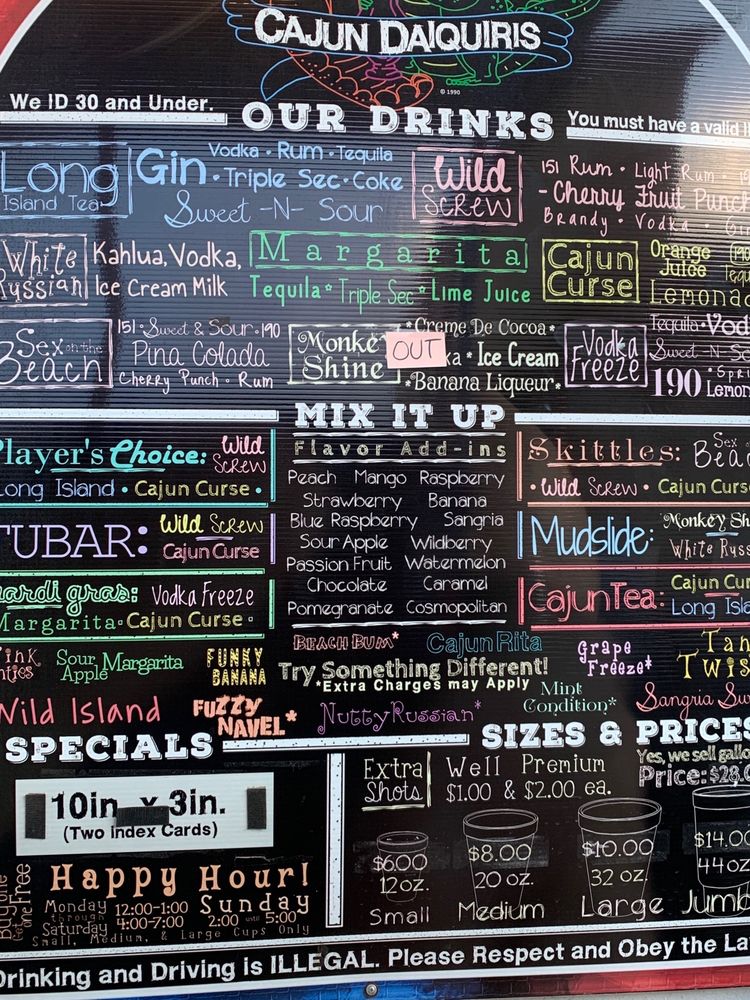 CAJUN DAIQUIRIS
© 1990
We ID 30 and Under.
OUR DRINKS
You must have a valid
Long
Island Tea
Gin • Vodka • Rum • Tequila
• Triple Sec • Coke
Sweet -N- Sour
Wild
Screw
151 Rum • Light Rum •
- Cherry Fruit Punch
Brandy • Vodka •
White
Russian
Kahlua, Vodka,
Ice Cream Milk
Margarita
Tequila * Triple Sec * Lime Juice
Cajun
Curse
Orange
Juice
190
Lemona
Sex on the
Beach
151 • Sweet & Sour • 190
Pina Colada
Cherry Punch • Rum
Monke
Shine
OUT
*Creme De Cocoa*
ka * Ice Cream
*Banana Liqueur*
Vodka
Freeze
Tequila • Vod
Sweet -N- So
190
Lemon
MIX IT UP
Flavor Add-ins
Peach Mango Raspberry
Strawberry Banana
Blue Raspberry Sangria
Sour Apple Wildberry
Passion Fruit Watermelon
Chocolate Caramel
Pomegranate Cosmopolitan
Player's Choice: Wild
Screw
Long Island • Cajun Curse •
TUBAR: Wild Screw
Cajun Curse
ardi gras: Vodka Freeze
Margarita • Cajun Curse •
Skittles: Sex
Beac
• Wild Screw • Cajun Curs
Mudslide: Monkey Sh
White Russ
Cajun Tea: Cajun Cur
Long Isla
ink
nties
Sour
Apple Margarita
FUNKY
BANANA
Wild Island
FUZZY
NAVEL*
BEACH BUM*
Cajun Rita
Try Something Different!
*Extra Charges may Apply
Nutty Russian*
Grape
Freeze*
Mint
Condition*
Tan
Twis
Sangria Su
SPECIALS
10in. x 3in.
(Two Index Cards)
Buy one
Get one Free
Happy Hour!
Monday
through
Saturday
12:00-1:00
4:00-7:00
Sunday
2:00 until 5:00
Small, Medium, & Large Cups Only
SIZES & PRICES
Yes, we sell gallo
Price: $28.0
Extra
Shots
Well Premium
$1.00 & $2.00 ea.
$6.00
12 oz.
Small
$8.00
20 oz.
Medium
$10.00
32 oz.
Large
$14.00
44 oz.
Jumb
Drinking and Driving is ILLEGAL. Please Respect and Obey the La